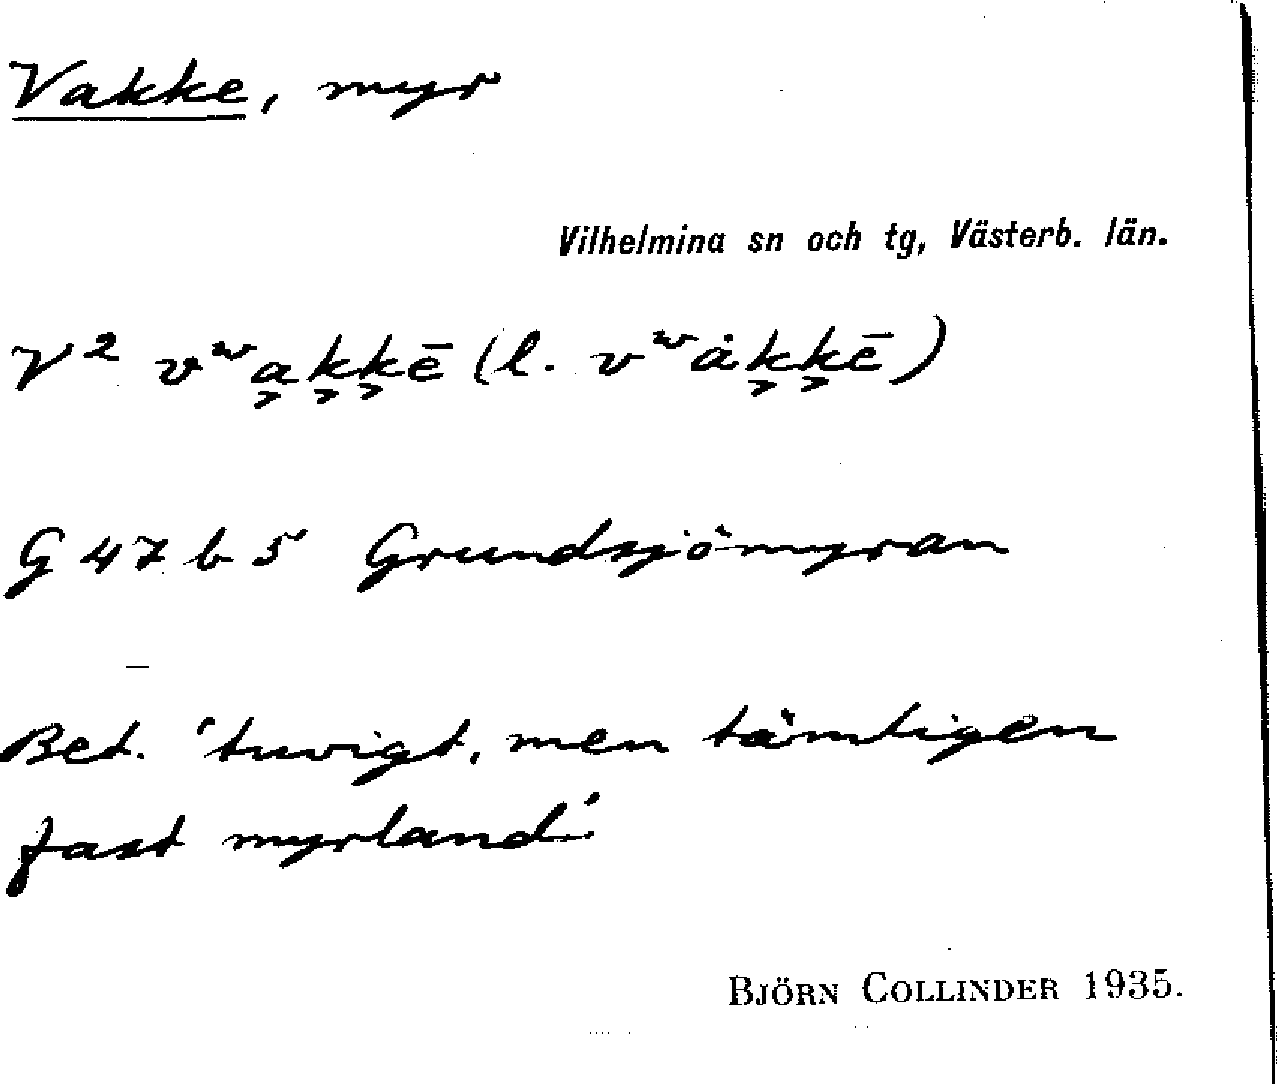 Vakke, myr
Vilhelmina sn och tg, Västerb. län.
V² vʷa͔k͔k͔ē (l. vʷȧk͔k͔ē)
G 47 b 5 Grundsjömyran
Bet. 'tuvigt, men tämligen
fast myrland'
BJÖRN COLLINDER 1935.